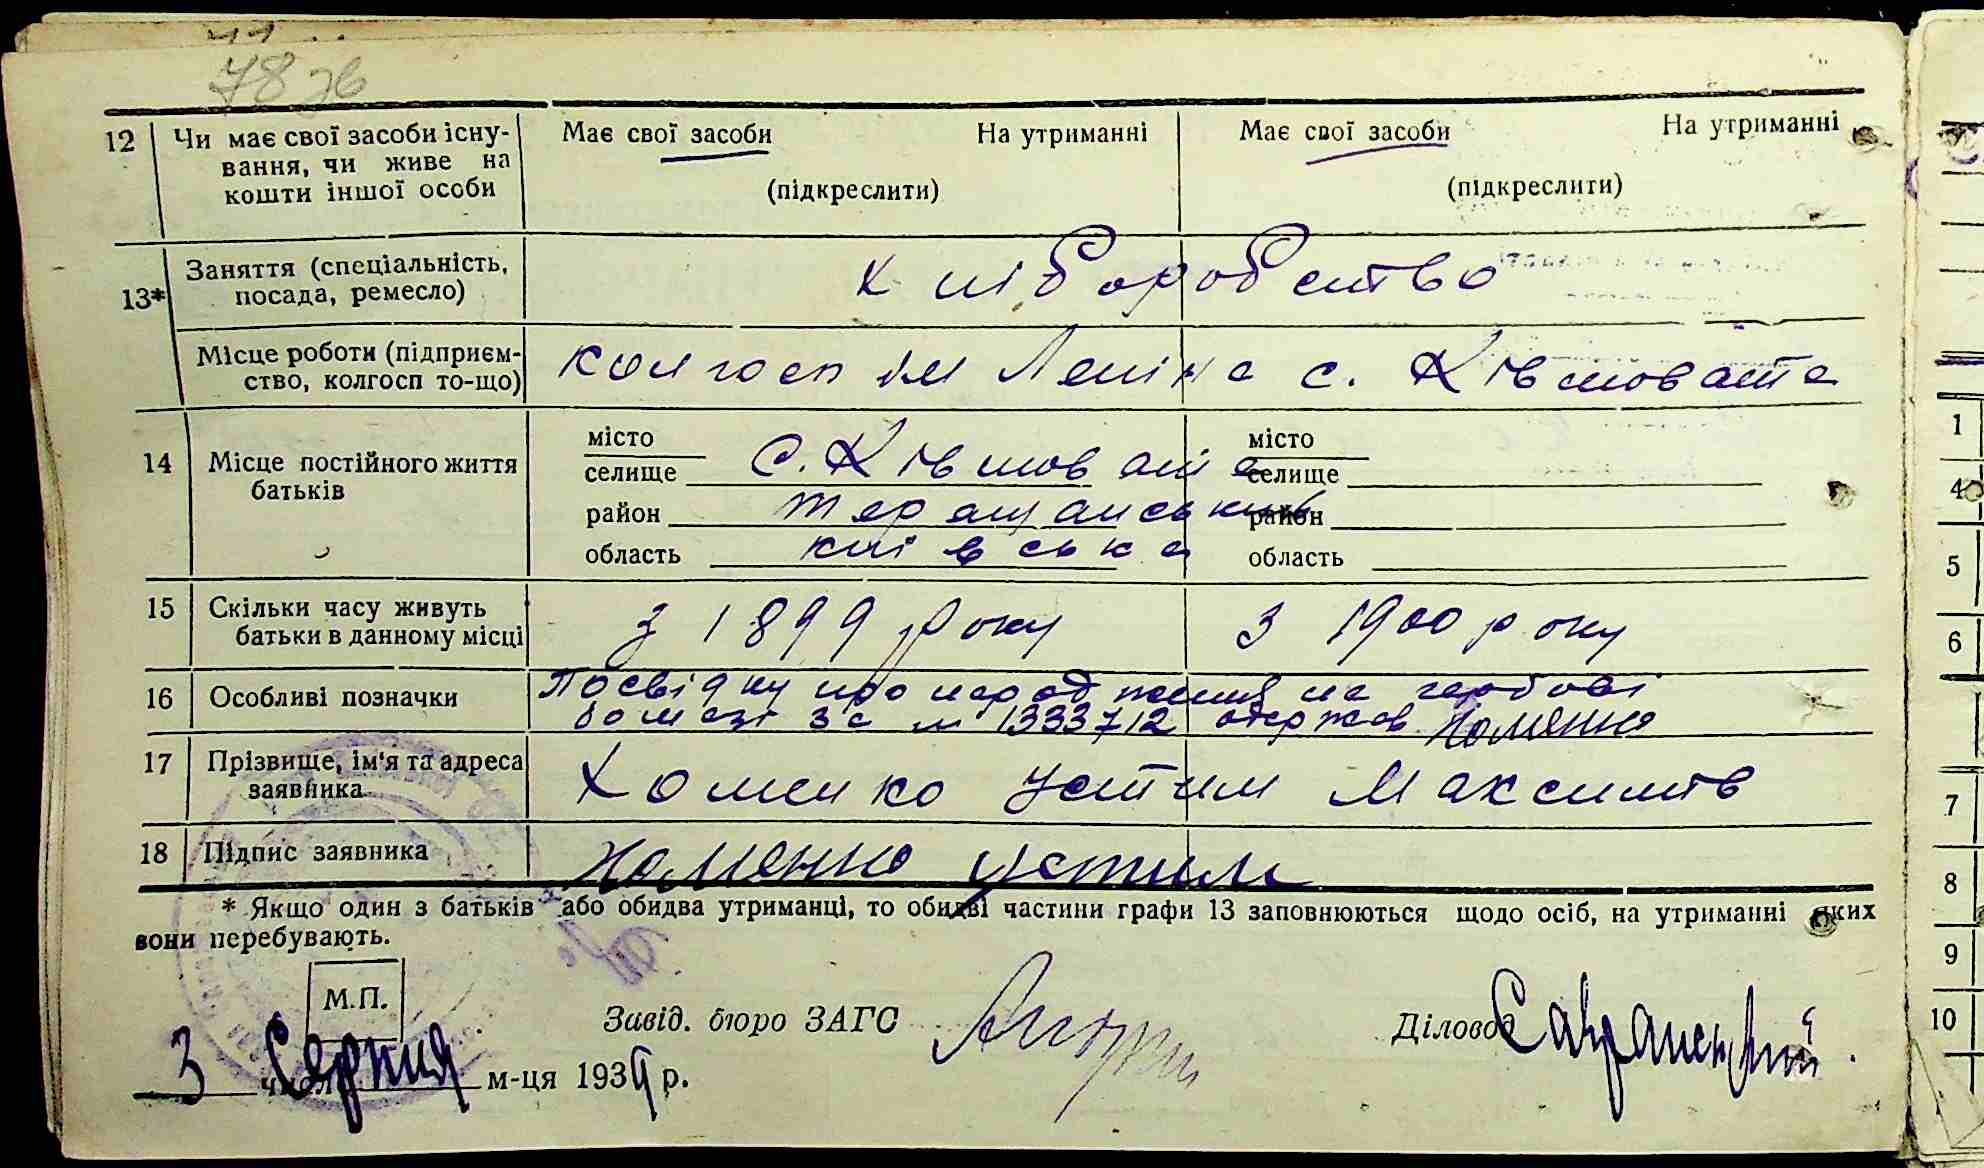 78 зв
12 Чи має свої засоби існу- Має свої засоби На утриманні Має свої засоби На утриманні
вання, чи живе на
кошти іншої особи (підкреслити) (підкреслити)
Заняття (спеціальність,
13* посада, ремесло) Хліборобство
Місце роботи (підприєм-
ство, колгосп то-що) колгосп ім Леніна с. Ківшовата
місто місто
14 Місце постійного життя селище с. Ківшовата селище
батьків
район Таращанський район
область київська область
15 Скільки часу живуть з 1899 року з 1900 року
батьки в данному місці
16 Особливі позначки Посвідку про народження на гербові
бомазі за м 1333712 одержав Хоменко
17 Прізвище, ім'я та адреса
заявника Хоменко Устим Максимів
18 Підпис заявника Хоменко Устим
* Якщо один з батьків або обидва утриманці, то обидві частини графи 13 заповнюються щодо осіб, на утриманні яких
вони перебувають.
М.П.
Завід. бюро ЗАГС Діловод
3 числ Серпня м-ця 1939 р.
1
4
5
6
7
8
9
10